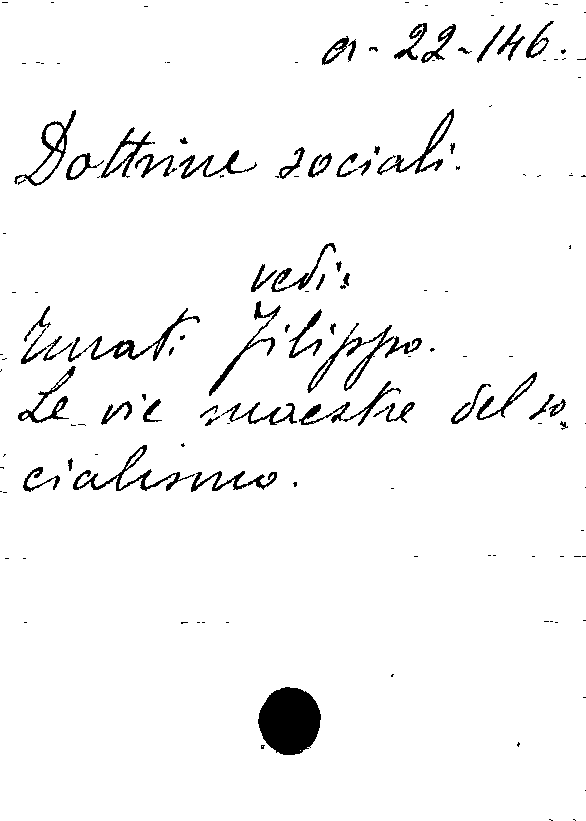 a-22-146.
Dottrine sociali.
vedi:
Turati Filippo.
Le vie maestre del so,
cialismo.